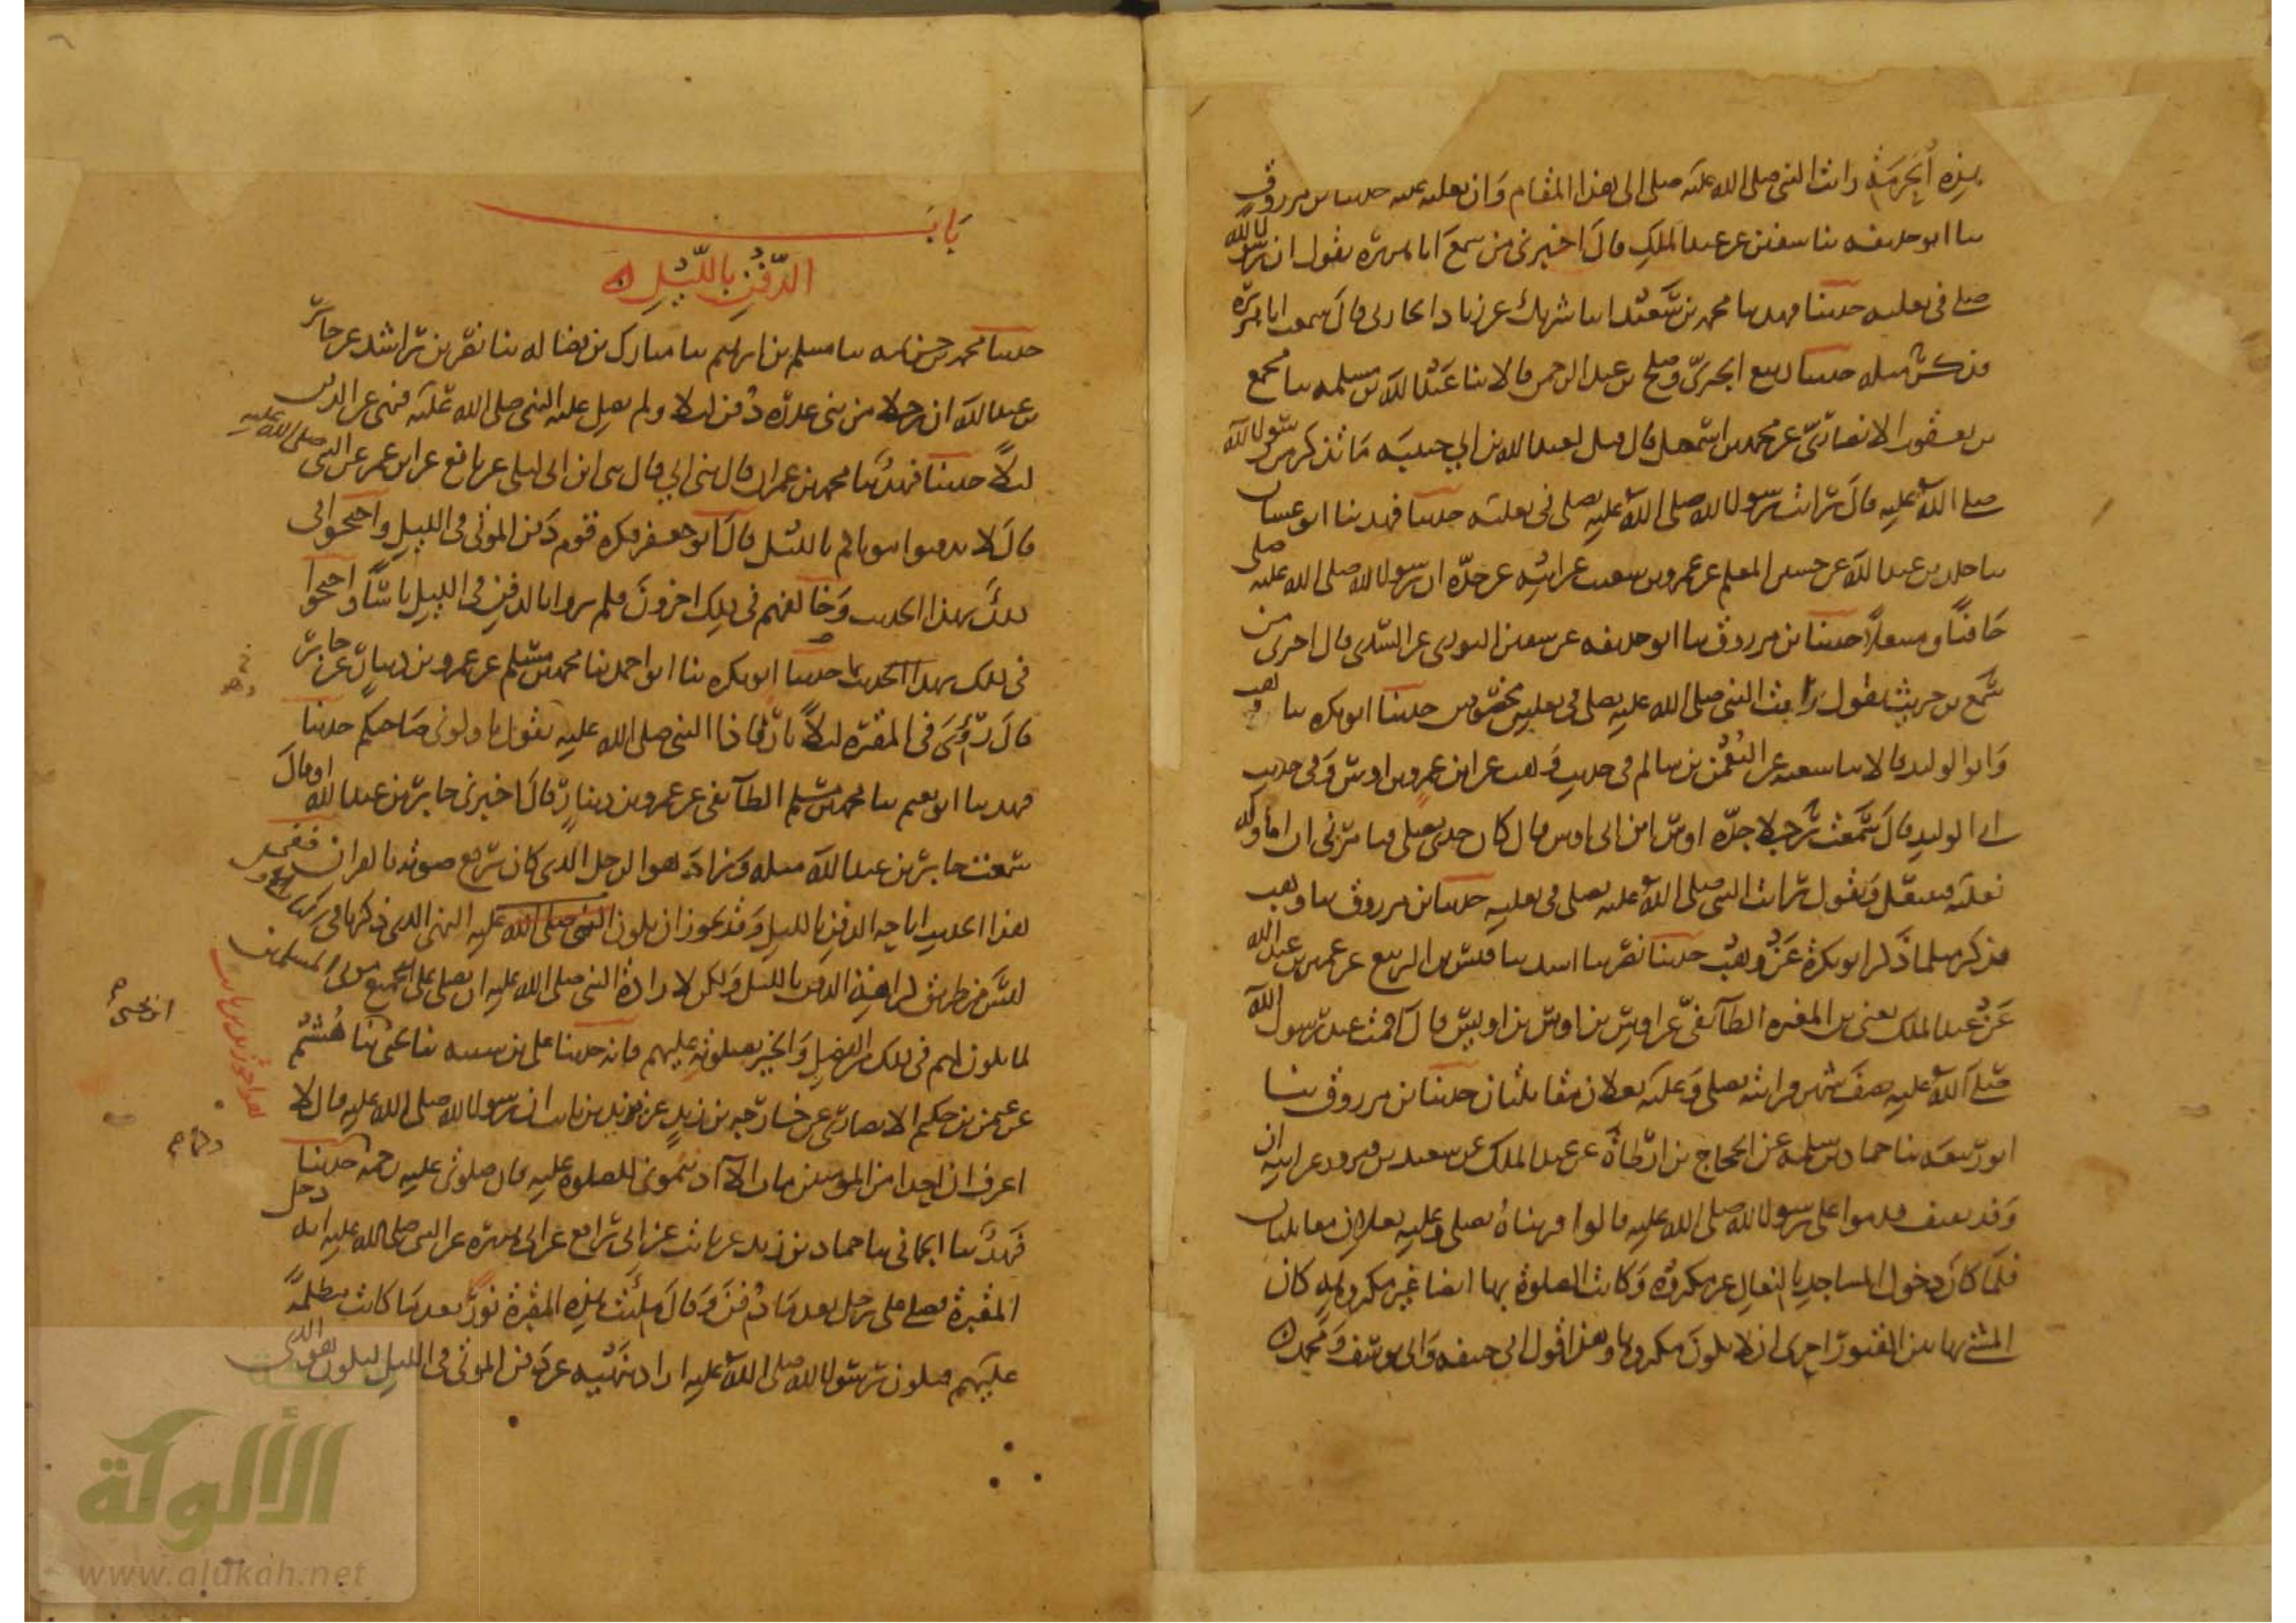 بهذه الحرمة رأيت النبي صلى الله عليه صلى الى هذا المقام وان نعليه عليه حدثنا بن مرزوق
ثنا ابو حذيفة ثنا سفين عن عبد الملك قال اخبرني من سمع ابا هريرة يقول ان رسول الله
صلى في نعليه حدثنا فهد ثنا محمد بن سعيد انا شريك عن زياد الحارثي قال سمعت ابا هريرة
فذكر مثله حدثنا ربيع الجيزي وصلح بن عبد الرحمن قالا ثنا عبد الله بن مسلمة ثنا مجمع
بن يعقوب الانصاري عن محمد بن اسمعيل قال قيل لعبد الله بن ابي حبيبة ما تذكر من رسول الله
صلى الله عليه قال رأيت رسول الله صلى الله عليه يصلي في نعليه حدثنا فهد ثنا ابو غسان
ثنا عن حسين المعلم عن عمرو بن شعيب عن ابيه عن جده ان رسول الله صلى الله عليه صلى
حافيا ومنتعلا حدثنا بن مرزوق ثنا ابو حذيفة عن سفين الثوري عن السدي قال اخبرني من
سمع بن حريث يقول رأيت النبي صلى الله عليه يصلي في نعلين مخصوفين حدثنا ابو بكرة ثنا وهب
وابو الوليد قالا ثنا شعبة عن النعمن بن سالم في حديث وهب عن ابن عمرو بن اوس وفي حديث
ابي الوليد قال سمعت رجلا جده اوس بن ابي اوس قال كان جدي يصلي فيأمرني ان اناوله
نعليه فينتعل ويقول رأيت النبي صلى الله عليه يصلي في نعليه حدثنا بن مرزوق ثنا وهب
فذكر مثل ما ذكر ابو بكرة عن وهب حدثنا نصر ثنا اسد ثنا قيس بن الربيع عن عمير بن عبد الله
عن عبد الملك يعني بن المغيرة الطائفي عن اويس بن اوس بن اويس قال اقمت عند رسول الله
صلى الله عليه نصف شهر فرأيته يصلي وعليه نعلان مقابلتان حدثنا بن مرزوق ثنا
ابو ربيعة ثنا حماد بن سلمة عن الحجاج بن ارطاة عن عبد الملك عن سعيد بن فيروز عن ابيه ان
وفد ثقيف قدموا على رسول الله صلى الله عليه قالوا فرأيناه يصلي وعليه نعلان مقابلتان
فلما كان دخول المساجد بالنعال غير مكروه وكانت الصلوة بها ايضا غير مكروهة كان
المشي بها بين القبور احرى ان لا يكون مكروها وهذا قول ابي حنيفة وابي يوسف ومحمد
باب
الدفن بالليل
حدثنا محمد بن خزيمة ثنا مسلم بن ابرهيم ثنا مبارك بن فضالة ثنا نصر بن راشد عن جابر
بن عبد الله ان رجلا من بني عذرة دفن ليلا ولم يصل عليه النبي صلى الله عليه فنهى عن الدفن
ليلا حدثنا فهد ثنا محمد بن عمران قال ثني ابي قال ثني ابن ابي ليلى عن نافع عن ابن عمر عن النبي صلى الله عليه
قال لا تدفنوا موتاكم بالليل قال ابو جعفر فكره قوم دفن الموتى في الليل واحتجوا في
ذلك بهذا الحديث وخالفهم في ذلك اخرون فلم يروا بالدفن في الليل باسا واحتجوا
في ذلك بهذا الحديث بما حدثنا ابو بكرة ثنا ابو احمد ثنا محمد بن مسلم عن عمرو بن دينار عن جابر
قال رؤي في المقبرة ليلا نار فاذا النبي صلى الله عليه يقول ناولوني صاحبكم حدثنا
فهد ثنا ابو نعيم ثنا محمد بن مسلم الطائفي عن عمرو بن دينار قال اخبرني جابر بن عبد الله او قال
سمعت جابر بن عبد الله مثله وزاد هو الرجل الذي كان يرفع صوته بالقران ففي
هذا الحديث اباحة الدفن بالليل وقد يجوز ان يكون النبي صلى الله عليه النهي الذي ذكرنا في
ليس من طريق كراهية الدفن بالليل ولكن لارادة النبي صلى الله عليه ان يصلي على جميع موتى المسلمين
لما يكون لهم في ذلك من الفضل والخير بصلوته عليهم فانه حدثنا علي بن شيبة ثنا يحيى ثنا هشيم
عن عثمن بن حكيم الانصاري عن خارجة بن زيد عن يزيد بن ثابت ان رسول الله صلى الله عليه قال لا
اعرفن احدا من المؤمنين مات الا آذنتموني للصلوة عليه فان صلوتي عليه رحمة حدثنا
فهد ثنا الحماني ثنا حماد بن زيد عن ثابت عن ابي رافع عن ابي هريرة عن النبي صلى الله عليه انه دخل
المقبرة فصلى على رجل بعد ما دفن وقال ملئت هذه المقبرة نورا بعد ما كانت مظلمة
عليهم فيكون رسول الله صلى الله عليه اراد بنهيه عن دفن الموتى في الليل ليكون هو الذي
الألوكة
www.alukah.net